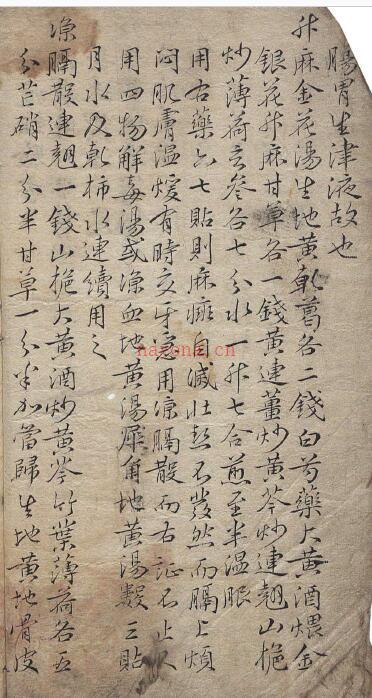 腸胃生津液故也
升麻金花湯生地黃乾葛各二錢白芍藥大黃酒煨金
銀花升麻甘草各一錢黃連薑炒黃芩炒連翹山梔
炒薄荷玄參各七分水一升七合煎至半溫服
用右藥六七貼則麻癍自滅壯熱不發然而膈上煩
悶肌膚溫煖有時交牙之用涼膈散而右證不止又
用四物解毒湯或涼血地黃湯犀角地黃湯數三貼
月水及乾柿水連續用之
涼膈散連翹一錢山梔大黃酒炒黃芩竹葉薄荷各五
分芒硝二分半甘草一分半加當歸生地黃地骨皮
nazuna.cn